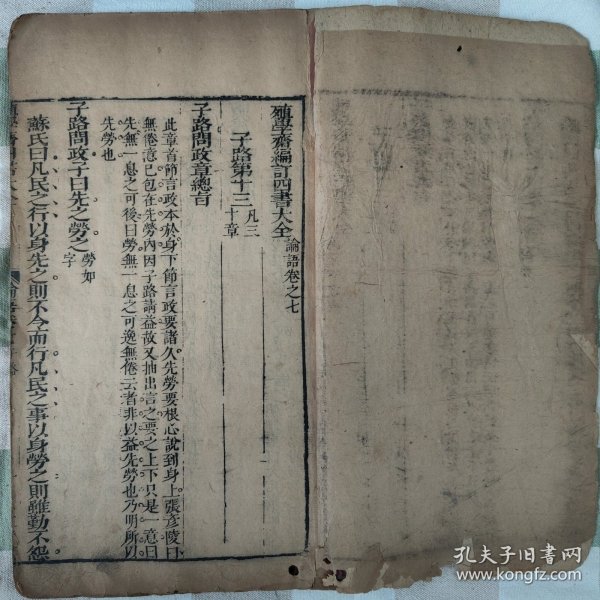 殖學齋編訂四書大全 論語卷之七
子路第十三 凡三
十章
子路問政章總旨
此章首節言政本於身下節言政要諸久先勞要根心說到身上張彥陵曰
無倦意已包在先勞內因子路請益故又抽出言之要之上下只是一意曰
先無一息之可後曰勞無一息之可逸無倦云者非以益先勞也乃明所以
先勞也
子路問政子曰先之勞之 勞如
字
蘇氏曰凡民之行以身先之則不令而行凡民之事以身勞之則雖勤不怨
孔夫子旧书网
www.kongfz.com